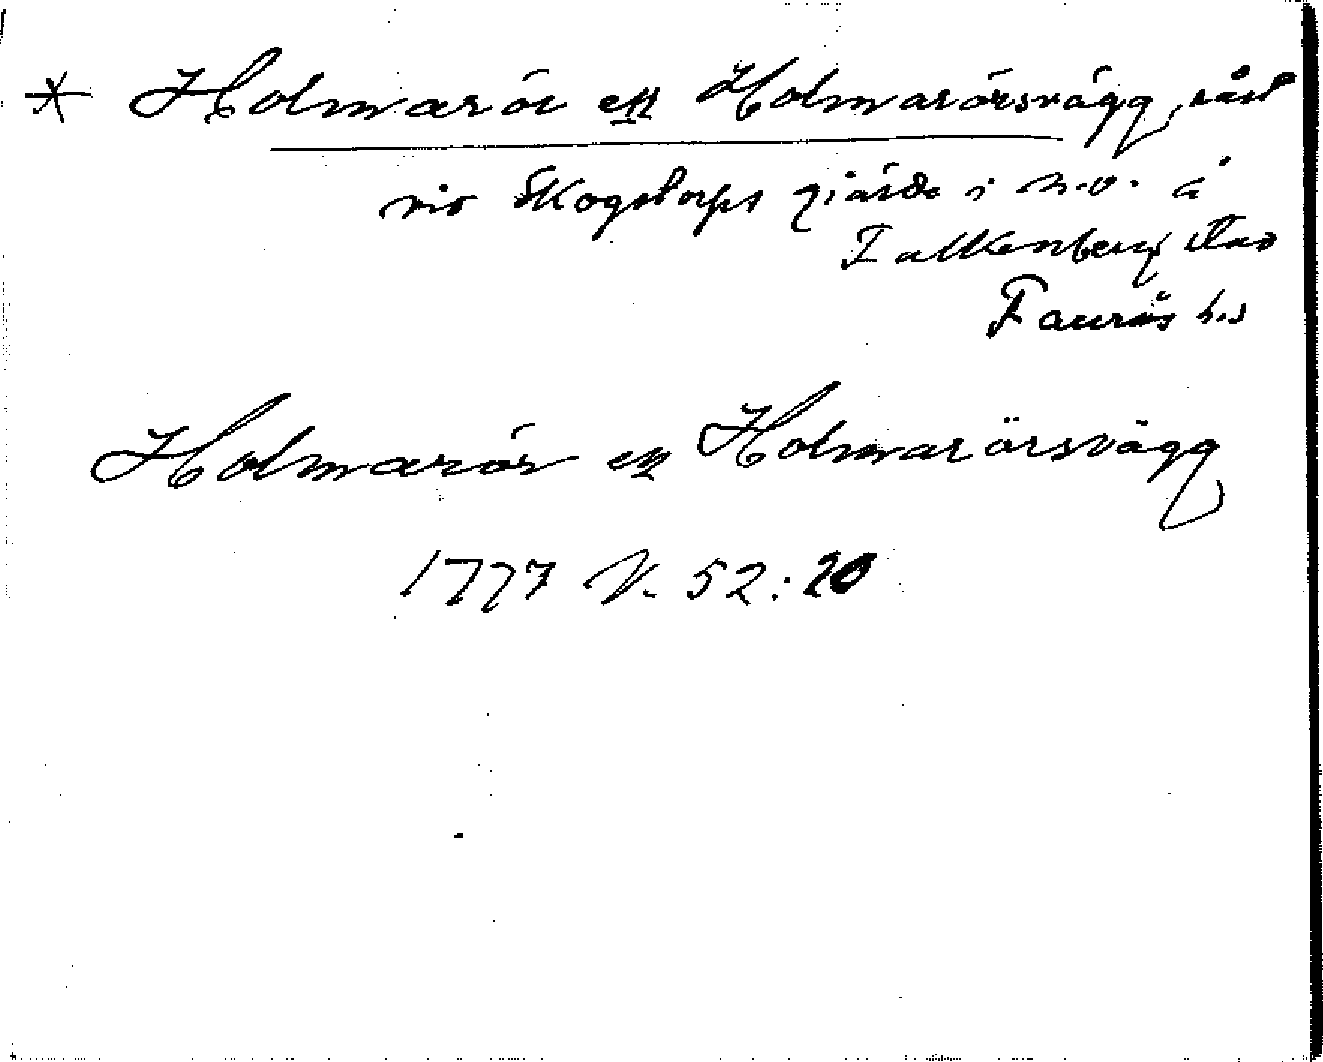 * Holmarör ell Holmarörsvägg, råst
vid Skogstorps gjärde i n.v. å
Falkenberg stad
Faurås h.d
Holmarör ell Holmarörsvägg
1777 N. 52:20